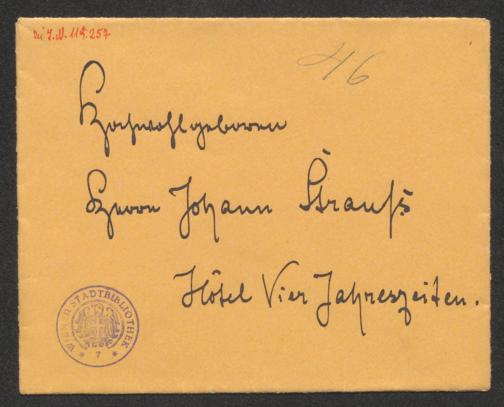 zu I.N. 119.257
46
Hochwohlgeboren
Herrn Johann Strauß
Hôtel Vier Jahreszeiten.
WIENER STADTBIBLIOTHEK
* 7 *